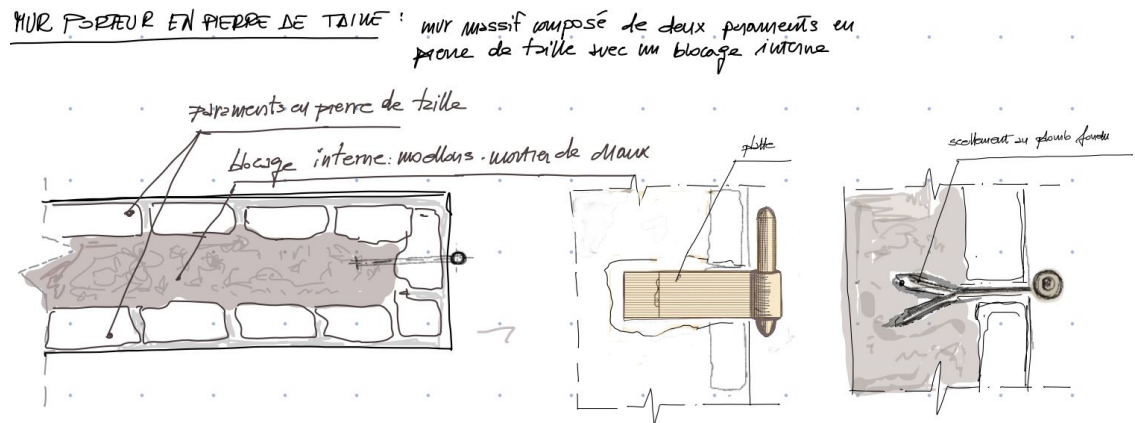 MUR PORTEUR EN PIERRE DE TAILLE : mur massif composé de deux paraments en
pierre de taille avec un blocage interne
paraments en pierre de taille
blocage interne: moellons. mortier de chaux
patte
scellement au plomb fondu